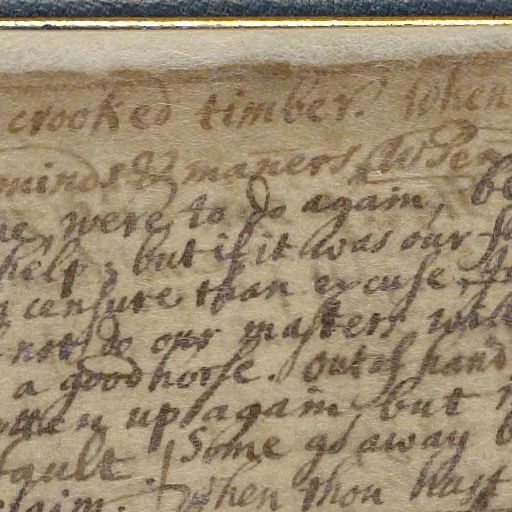 crooked timber. When
minds & maners, when
were to do again, be
help; but if it was our
censure than excuse.
not do our masters will
a good horse. out of hand
up again but
fault. Some go away
claim. When thou hast